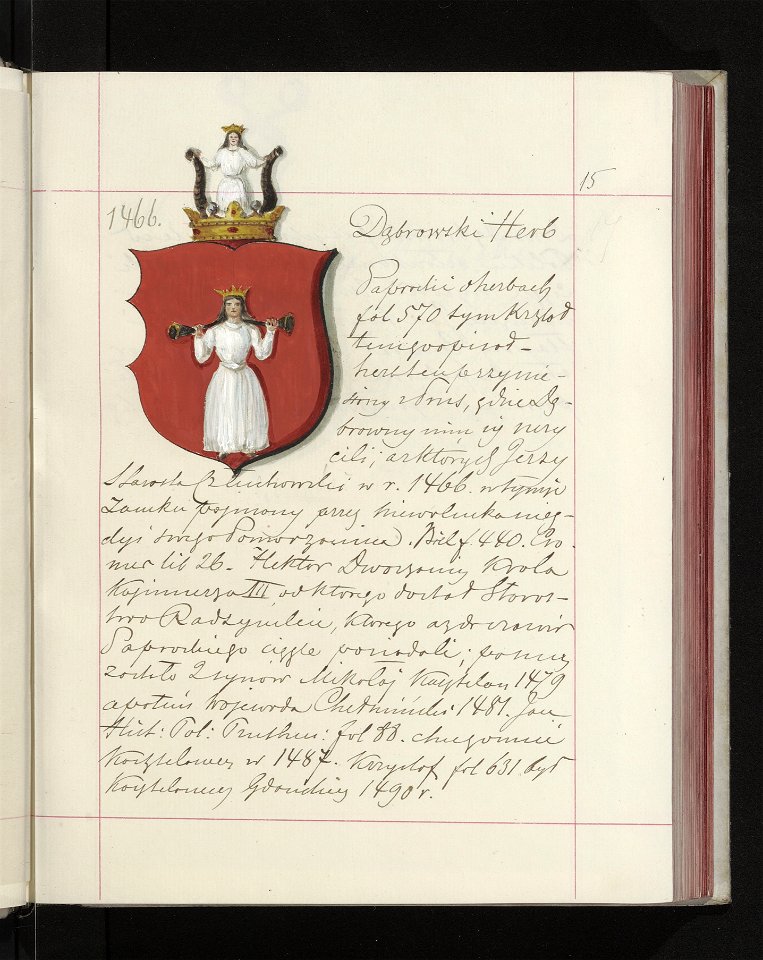 15
1466.
Dąbrowski Herb
Paprocki o herbach
fol 570 tym Krztod
herb ten przynie-
siony z Prus, gdzie Dą-
browny nim się
cili; a z ktorych Jerzy
Starosta Człuchowski w r. 1466. w tymże
Zamku poimany przez niewolnika nieg-
dyś swego Pomorzanina. Biel f 440. Cro-
mer lib 26. Hektor Dworzanin Krola
Kazimierza III, od ktorego dostał Staros-
two Radzyńskie, ktorego aż do czasów
Paprockiego ciągle posiadali; po nim
zostało 2 synów Mikołaj Kasztelan 1479
a potem Wojewoda Chełmiński 1481. Jan
Hist: Pol: Pruthen: fol 88.
Kasztelanem w 1487. Krzysztof fol 631 był
Kasztelanem Gdanskim 1490 r.